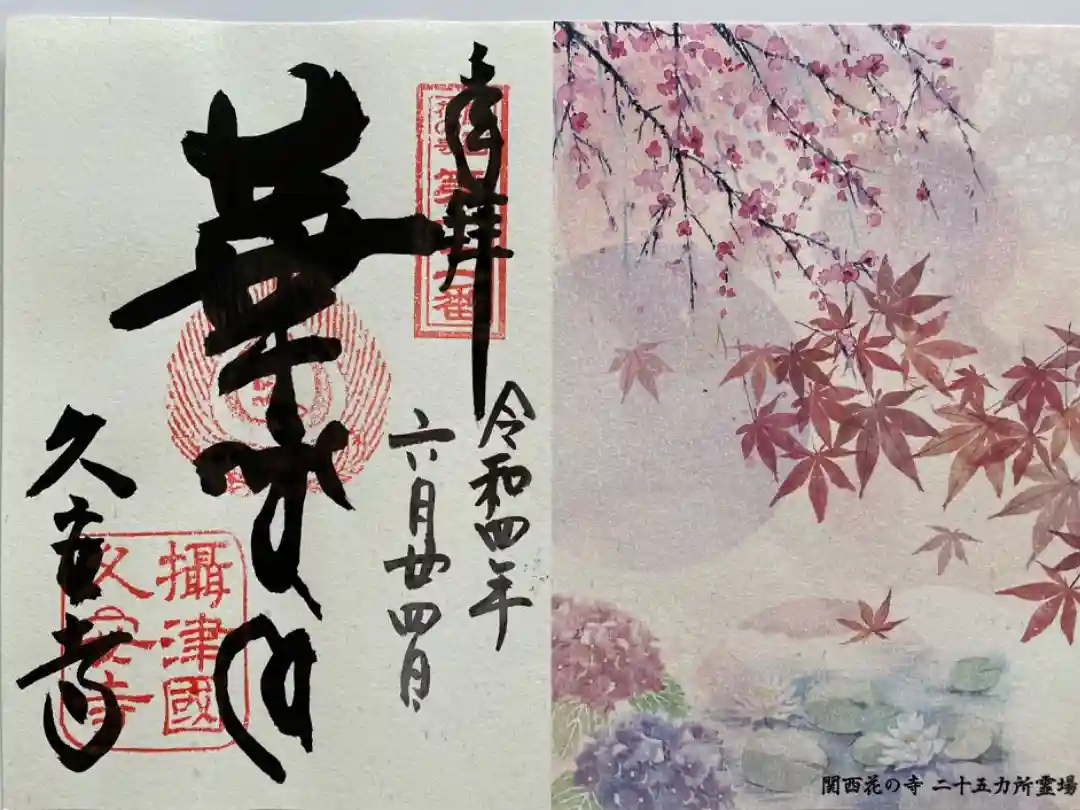 奉拝
令和四年
六月廿四日
華
攝津國
久安寺
久安寺
関西花の寺 二十五カ所霊場